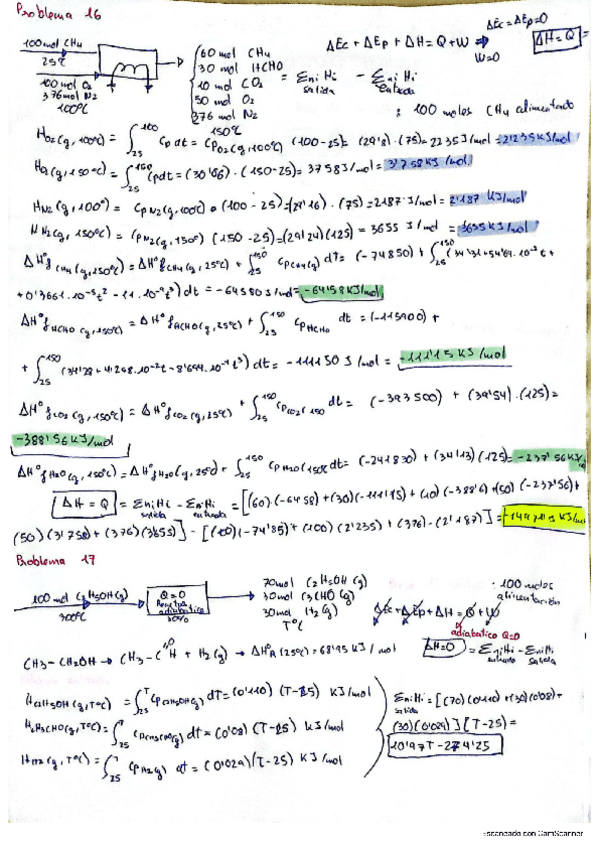 Problema 16
ΔEc = ΔEp = 0
ΔEc + ΔEp + ΔH = Q + W ⇒ ΔH = Q =
W=0
100 mol CH4
25ºC
100 mol O2
376 mol N2
100ºC
60 mol CH4
30 mol HCHO
10 mol CO2
50 mol O2
376 mol N2
150ºC
= Σni Hi salida - Σni Hi entrada
: 100 moles CH4 alimentado
HO2(g,100ºC) = ∫25^100 Cp dt = CpO2(g,100ºC) (100-25) = (29'8)·(75) = 2235 J/mol = 2'235 KJ/mol
HO2(g,150ºC) = ∫25^150 Cp dt = (30'06)·(150-25) = 3758 J/mol = 3'758 KJ/mol
HN2(g,100º) = CpN2(g,100ºC)·(100-25) = (29'16)·(75) = 2187 J/mol = 2'187 KJ/mol
HN2(g,150ºC) = CpN2(g,150º) (150-25) = (29'24)(125) = 3655 J/mol = 3'655 KJ/mol
ΔHºf CH4(g,150ºC) = ΔHºf CH4(g,25ºC) + ∫25^150 CpCH4(g) dT = (-74850) + ∫25^150 (34'31+5'469·10^-2 t +
+ 0'3661·10^-5 t^2 - 11·10^-9 t^3) dt = -64580 J/mol = -64'58 KJ/mol
ΔHºf HCHO(g,150ºC) = ΔHºf HCHO(g,25ºC) + ∫25^150 CpHCHO dt = (-115900) +
+ ∫25^150 (34'28 + 4'268·10^-2 t - 8'694·10^-9 t^3) dt = -111150 J/mol = -111'15 KJ/mol
ΔHºf CO2(g,150ºC) = ΔHºf CO2(g,25ºC) + ∫25^150 CpCO2(150 dt = (-393500) + (39'54)·(125) =
-388'56 KJ/mol
ΔHºf H2O(g,150ºC) = ΔHºf H2O(g,25ºC) + ∫25^150 CpH2O(150ºC dt = (-241830) + (34'13)(125) = -237'56 KJ/
ΔH = Q = Σni Hi salida - Σni Hi entrada = [(60)·(-64'58) + (30)(-111'15) + (10)(-388'6) + (50)(-237'56) +
(50)(3'758) + (376)(3'655)] - [(100)(-74'85) + (100)(2'235) + (376)·(2'187)] =
Problema 17
100 mol C2H5OH(g)
300ºC
Q=0
Reactor adiabático
30%
70 mol C2H5OH (g)
30 mol CH3CHO (g)
30 mol H2 (g)
TºC
: 100 moles alimentación
ΔEc + ΔEp + ΔH = Q + W
adiabatico Q=0
ΔH=0 = Σni Hi entrada - Σni Hi salida
CH3-CH2OH → CH3-C=O H + H2(g) → ΔHºR (25ºC) = 68'95 KJ/mol
HC2H5OH(g,TºC) = ∫25^T CpC2H5OH(g) dT = (0'110) (T-25) KJ/mol
HCH3CHO(g,TºC) = ∫25^T CpCH3CHO(g) dT = (0'08) (T-25) KJ/mol
HH2(g,TºC) = ∫25^T CpH2(g) dt = (0'029)(T-25) KJ/mol
Σni Hi salida = [(70)(0'110) + (30)(0'08) +
(30)(0'029)] (T-25) =
10'97T - 274'25
Escaneado con CamScanner